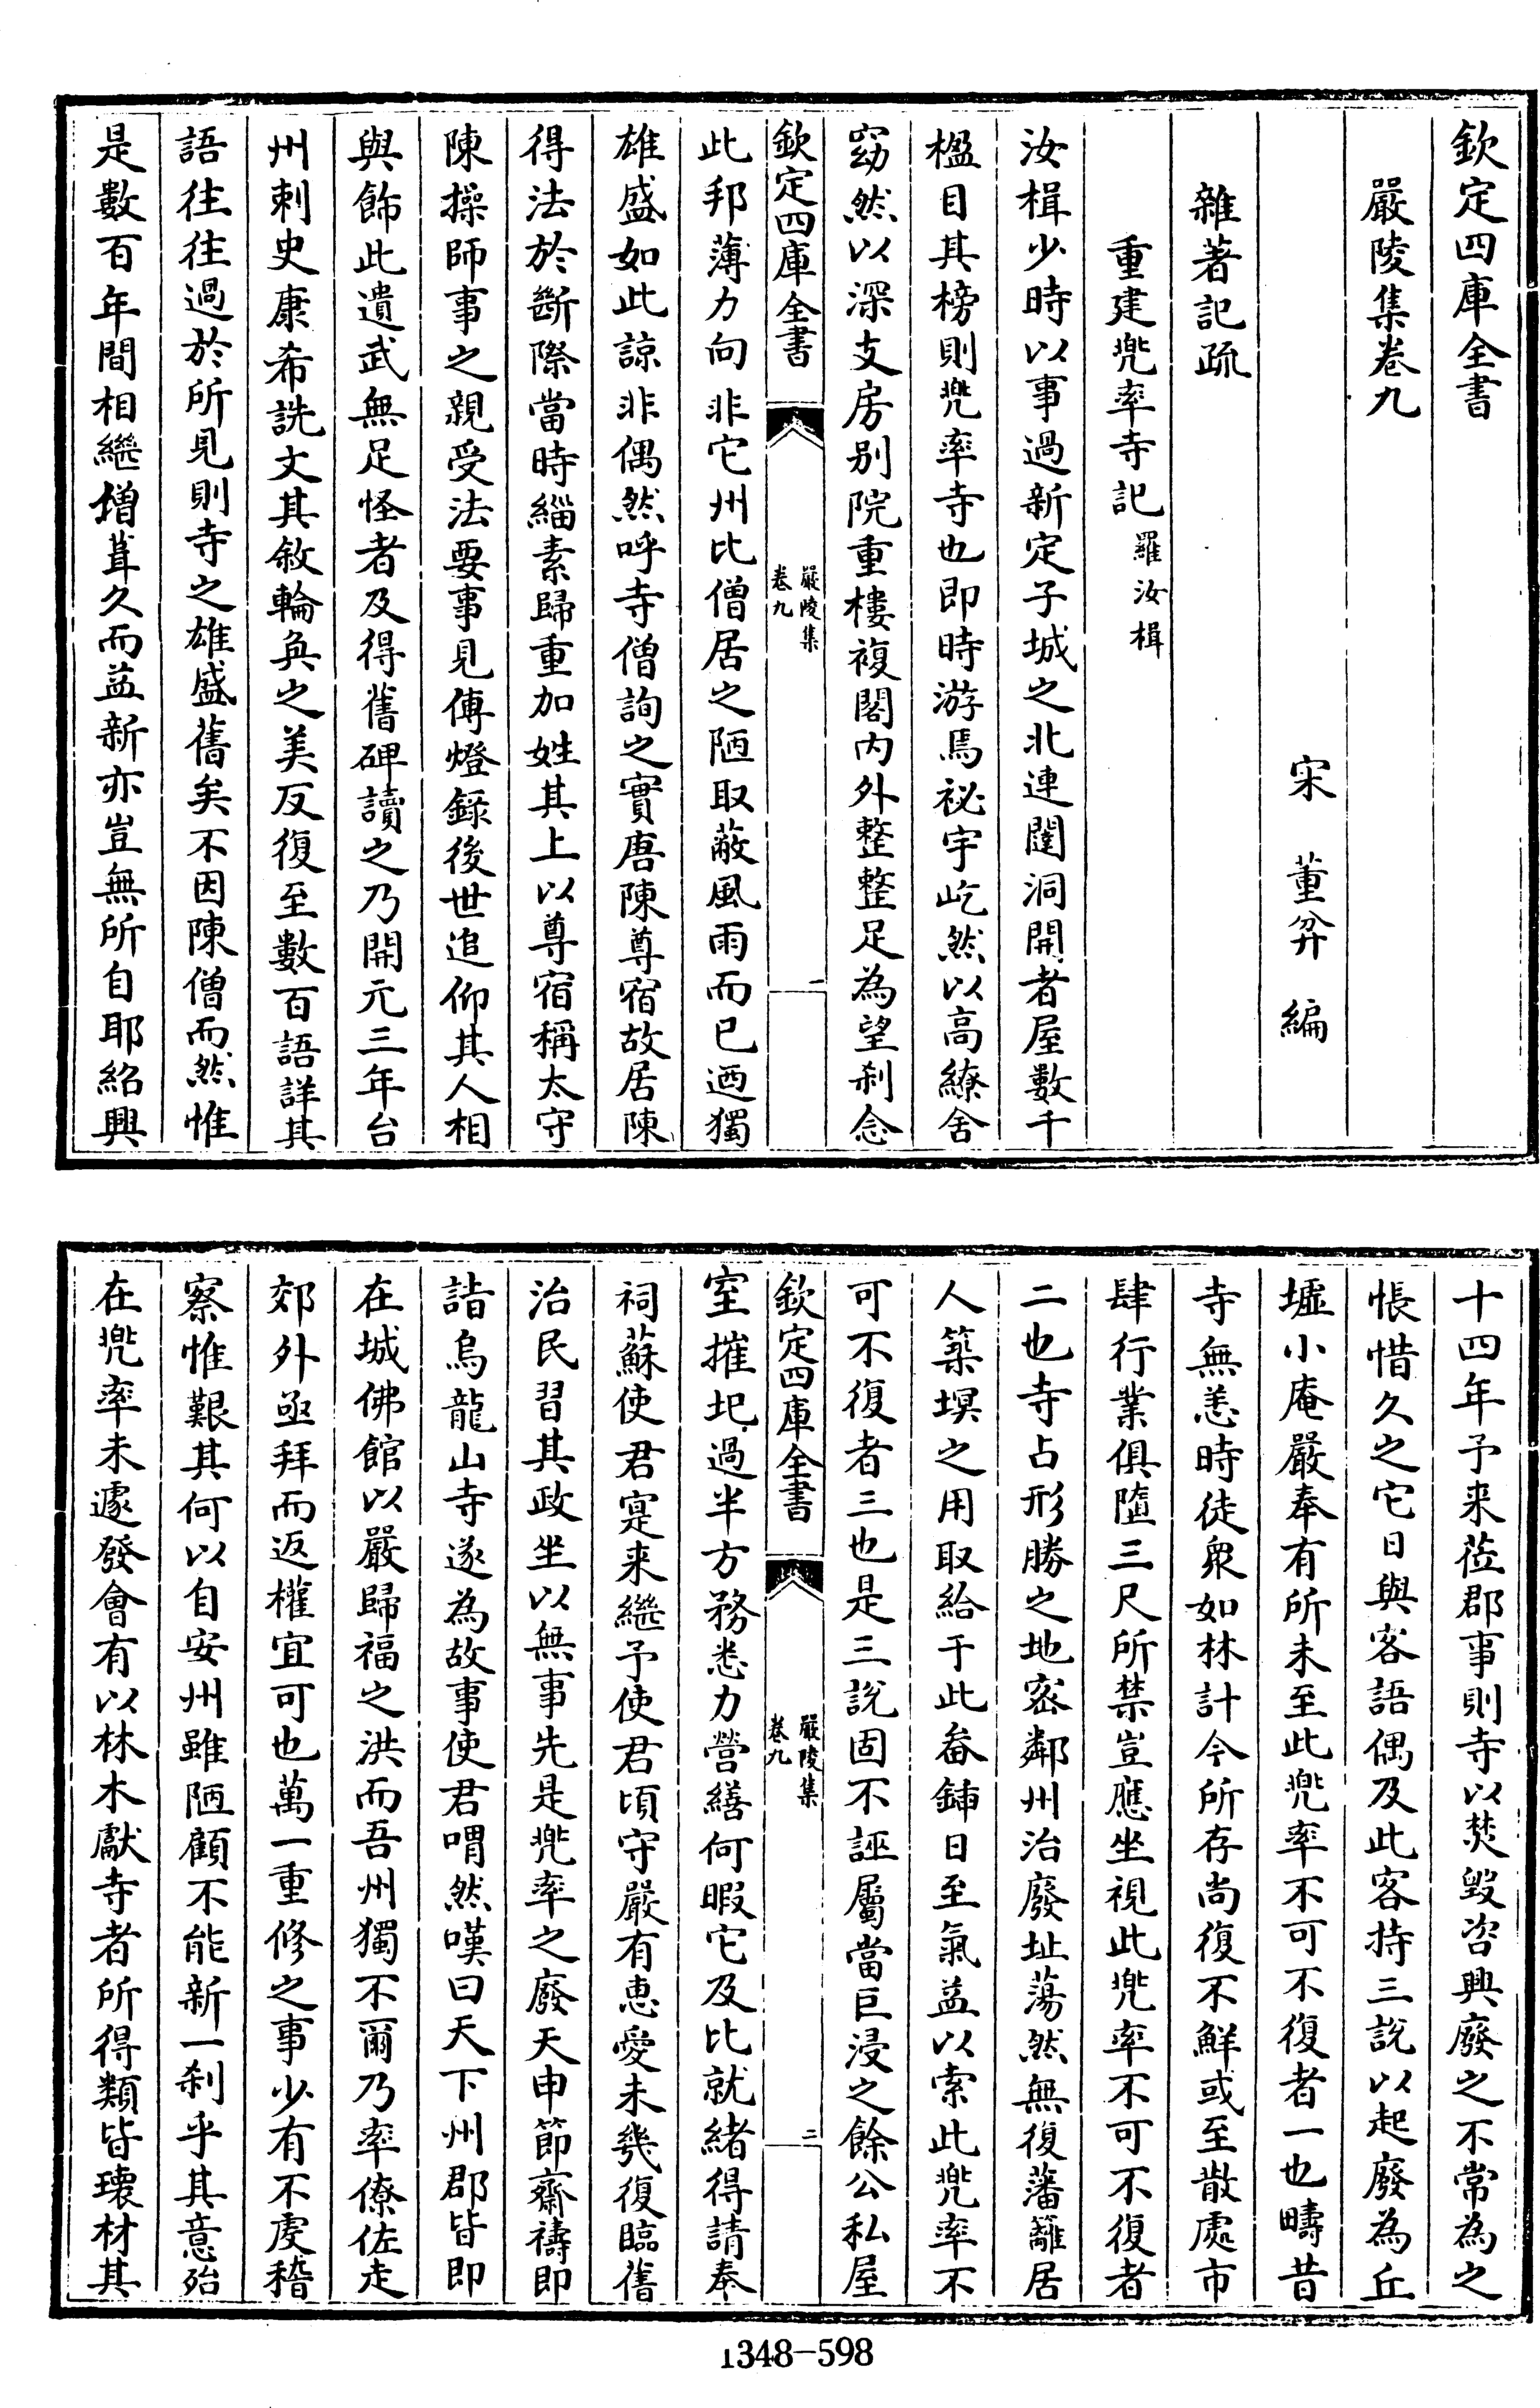 欽定四庫全書
嚴陵集卷九
宋 董弅 編
雜著記疏
重建兜率寺記 羅汝楫
汝楫少時以事過新定子城之北連闥洞開者屋數千
楹目其榜則兜率寺也即時游焉祕宇屹然以高繚舍
窈然以深支房别院重樓複閣内外整整足為望剎念
欽定四庫全書
嚴陵集
卷九
一
此邦薄力向非它州比僧居之陋取蔽風雨而已迺獨
雄盛如此諒非偶然呼寺僧詢之實唐陳尊宿故居陳
得法於斷際當時緇素歸重加姓其上以尊宿稱太守
陳操師事之親受法要事見傳燈錄後世追仰其人相
與飾此遺武無足怪者及得舊碑讀之乃開元三年台
州刺史康希詵文其敘輪奐之美反復至數百語詳其
語往往過於所見則寺之雄盛舊矣不因陳僧而然惟
是數百年間相繼增葺久而益新亦豈無所自耶紹興
十四年予来莅郡事則寺以焚毁咨興廢之不常為之
悵惜久之它日與客語偶及此客持三說以起廢為丘
墟小庵嚴奉有所未至此兜率不可不復者一也疇昔
寺無恙時徒衆如林計今所存尚復不鮮或至散處市
肆行業俱墮三尺所禁豈應坐視此兜率不可不復者
二也寺占形勝之地密鄰州治廢址蕩然無復藩籬居
人築埧之用取給于此畚鍤日至氣益以索此兜率不
可不復者三也是三說固不誣屬當巨浸之餘公私屋
欽定四庫全書
嚴陵集
卷九
二
室摧圯過半方務悉力營繕何暇它及比就緒得請奉
祠蘇使君寔来繼予使君頃守嚴有惠愛未幾復臨舊
治民習其政坐以無事先是兜率之廢天申節齋禱即
詣烏龍山寺遂為故事使君喟然嘆曰天下州郡皆即
在城佛館以嚴歸福之洪而吾州獨不爾乃率僚佐走
郊外亟拜而返權宜可也萬一重修之事少有不虔稽
察惟艱其何以自安州雖陋顧不能新一剎乎其意殆
在兜率未遽發會有以林木獻寺者所得類皆瓌材其
1348-598